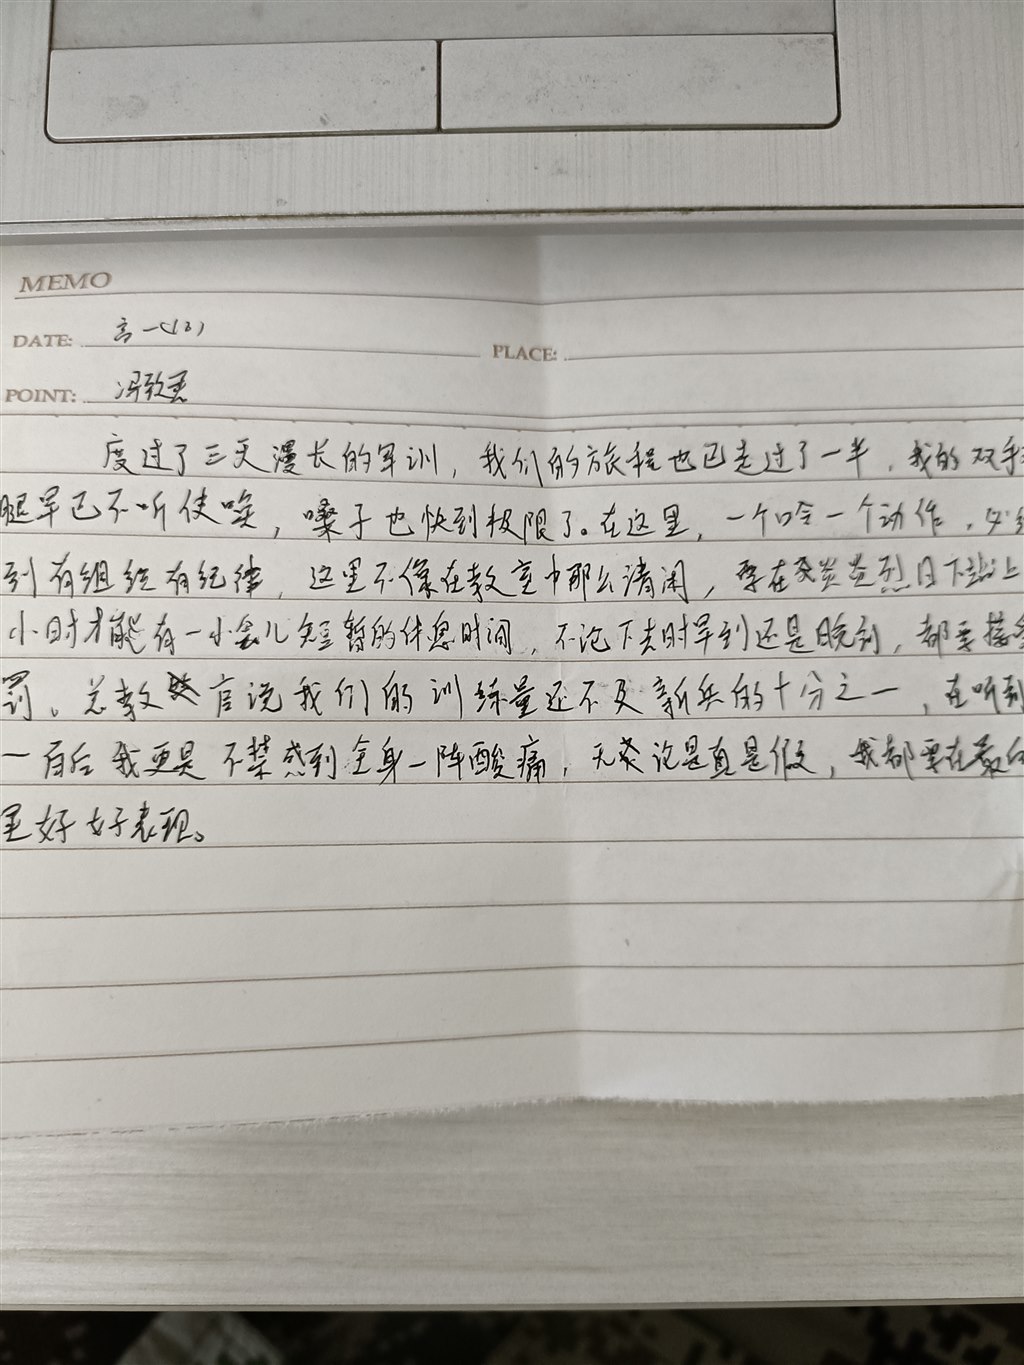 MEMO
DATE: 高一(12)
PLACE:
POINT: 冯致
度过了三天漫长的军训，我们的旅程也已走过了一半，我的双手
腿早已不听使唤，嗓子也快到极限了。在这里，一个口令一个动作，必
到有组织有纪律，这里不像在教室中那么清闲，要在炎炎烈日下站上
小时才能有一小会儿短暂的休息时间，不论下去时早到还是晚到，都要接
罚。总教官说我们的训练量还不及新兵的十分之一，在听到
一百后我更是不禁感到全身一阵酸痛，无论是真是假，我都要在最
里好好表现。